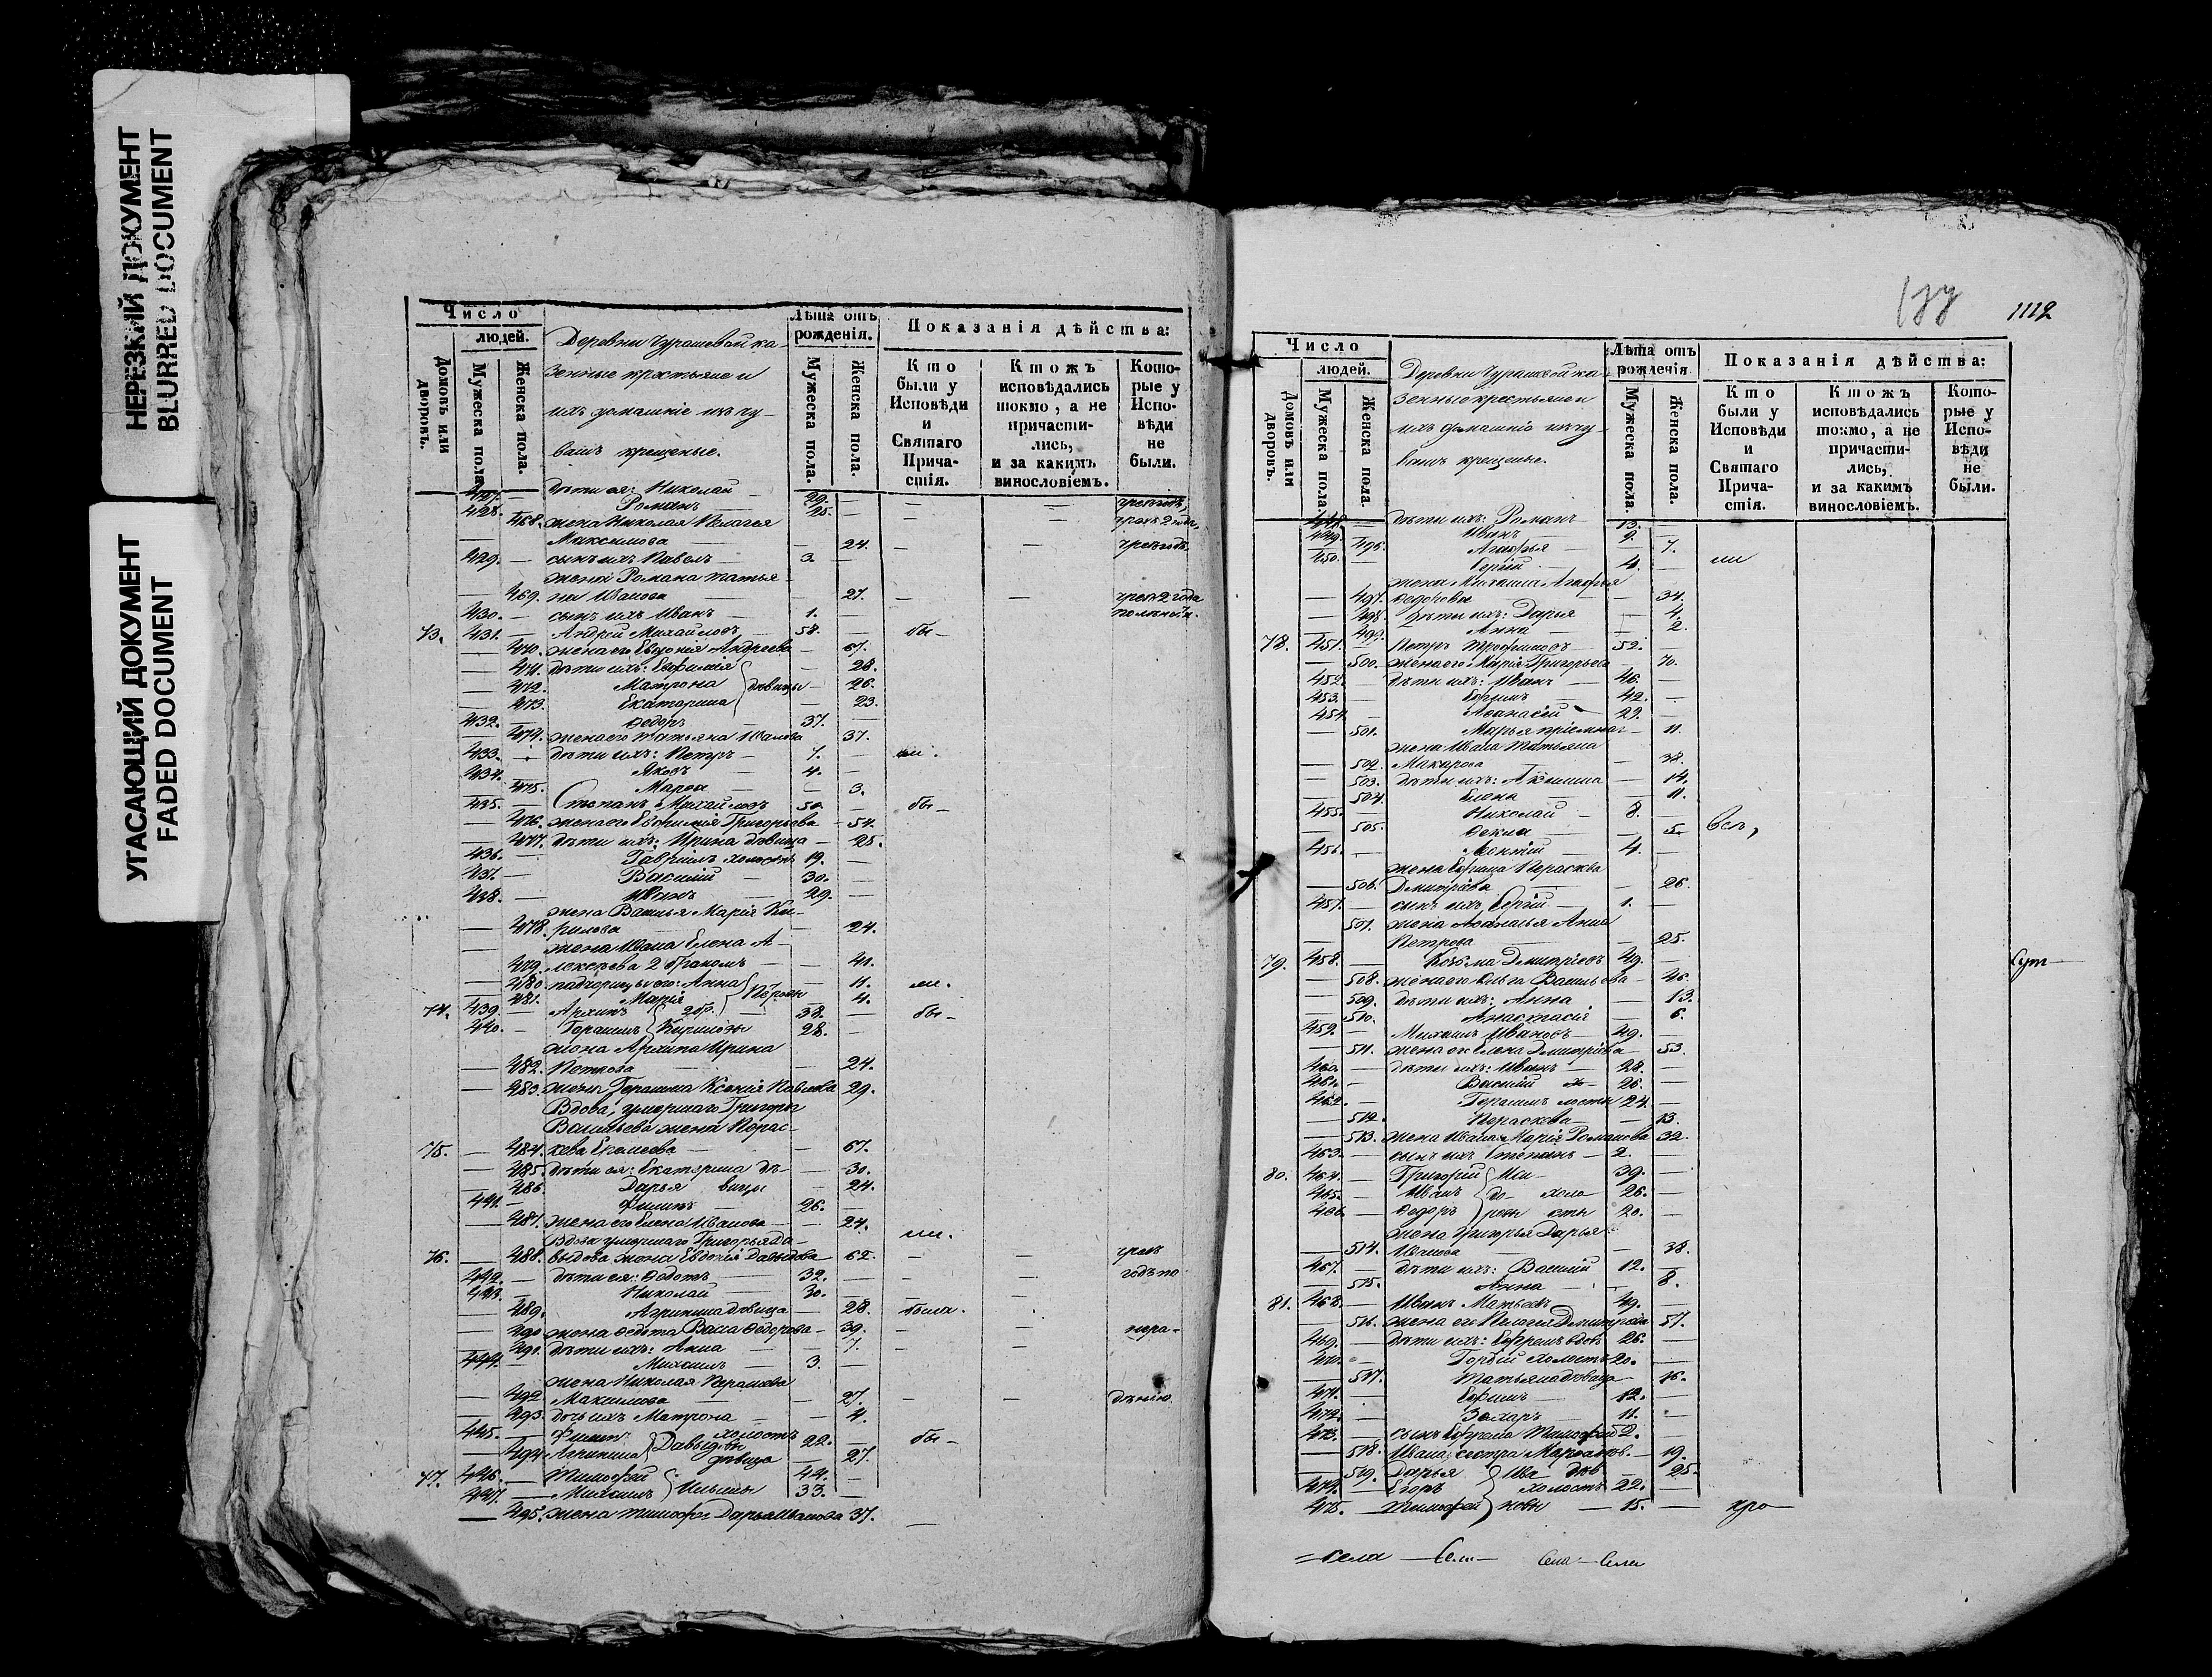 НЕРЕЗКИЙ ДОКУМЕНТ
BLURRED DOCUMENT
УГАСАЮЩИЙ ДОКУМЕНТ
FADED DOCUMENT
Число
людей.
Домовъ или дворовъ.
Мужеска пола.
Женска пола.
Деревни Чурашевой ка-
зенные крестьяне и
ихъ домашніе изъ чу-
вашъ крещеные.
Лѣта отъ рожденія.
Мужеска пола.
Женска пола.
Показанія дѣйства:
Кто были у Исповѣди и Святаго Причастія.
Ктожъ исповѣдались токмо, а не причастились, и за какимъ винословіемъ.
Которые у Исповѣди не были.
427. — дѣти ея: Николай 29. —
428. — Романъ 25. —
468. жена Николая Пелагея
Максимова — — 24. — —
429. — сынъ ихъ Павелъ — 3. —
жена Романа Татья-
469. на Иванова — 27. — — чрезъ 2 года
430. — сынъ ихъ Иванъ — 1. —
73. 431. — Андрей Михайловъ 58. — бы-
— 470. жена его Евдокія Андреева — 67.
— 471. дѣти ихъ: Евфимія — 28.
— 472. Матрона } дѣвицы — 26.
— 473. Екатерина — 23.
432. — Федоръ — 37. —
— 474. жена его Татьяна Иванова 37.
433. — дѣти ихъ: Петръ — 7. — ли.
434. Яковъ — 4. —
475. Марѳа — — 3.
435. — Степанъ Михайловъ 50. — бы-
— 476. жена его Евфимія Григорьева — 54.
— 477. дѣти ихъ: Ирина дѣвица — 25.
436. — Гавріилъ холостъ 19. —
437. — Василій — 30. —
438. — Иванъ — 29. —
жена Василья Марія Ки-
— 478. рилова — — 24.
жена Ивана Елена А-
— 479. лексѣева 2 бракомъ — 41.
— 480. падчерицы его: Анна — 11. ли.
— 481. Марія — 4.
74. 439. — Архипъ — 38. — бы-
440. — Герасимъ 28. —
жена Архипа Ирина
— 482. Петрова — 24.
— 483. жена Герасима Ксенія Павлова 29.
Вдова, умершаго Григорья
Васильева жена Парас-
75. — 484. кева — — 67.
— 485. дѣти ея: Екатерина дѣ- — 30.
— 486. Дарья вицы — 24.
441. — Филипъ — 26. —
— 487. жена его Елена Иванова — — 24.
Вдова умершаго Григорья Да- ли.
76. — 488. выдова жена Евдокія Давыдова — 62. — — чрезъ
442. — дѣти ея: Федотъ — 32. — — — годъ по
443. — Николай — 30. — —
489. Агрипина дѣвица — 28. была.
— 490. жена Федота Васса Федорова — 39. — — нера-
— 491. дѣти ихъ: Анна — 7. — —
444. — Михаилъ — 3. —
жена Николая
— 492. Максимова — — 27. — — дѣнію.
— 493. дочь ихъ Матрона — — 4.
445. — холостъ 22. — бы-
— 494. Агрипина } Давыдовы дѣвица — 27.
77. 446. — Тимофей 44. —
447. — Михаилъ } Ильины 33. —
— 495. жена Тимофея Дарья Иванова 37. —
1112
Число
людей.
Домовъ или дворовъ.
Мужеска пола.
Женска пола.
Деревни Чурашевой ка-
зенные крестьяне и
ихъ домашніе изъ чу-
вашъ крещеные.
Лѣта отъ рожденія
Мужеска пола.
Женска пола.
Показанія дѣйства:
Кто были у Исповѣди и Святаго Причастія.
Ктожъ исповѣдались токмо, а не причастились, и за какимъ винословіемъ.
Которые у Исповѣди не были.
448. — дѣти ихъ: Романъ 13. —
449. — Иванъ — 9. —
496. Агафья — 7.
450. — Сергій — 4. — ли
жена Михаила Агафья
— 497. Федорова — 34.
— 498. дѣти ихъ: Дарья — 4.
— 499. Анна — 2.
78. 451. — Петръ Трофимовъ — 52. —
— 500. жена его Марія Григорьева 70.
452. — дѣти ихъ: Иванъ — 46. —
453. — Ефимъ 42. —
454. — Афанасій — 29. —
— 501. Марья — 11.
жена Ивана Татьяна
— 502. Макарова — — 38.
— 503. дѣти ихъ: Акилина — 14.
— 504. Елена — — 11.
455. — Николай — 8. —
— 505. Фекла — — 5. всѣ,
456. — Леонтій — 4. —
жена Ефима Параскева
— 506. Дмитріева — — 26.
457. — сынъ ихъ Сергій — 1. —
507. жена Афанасья Анна
— Петрова — 25.
79. 458. — Козьма Дмитріевъ 49. —
— 508. жена его Ольга Васильева — 46.
— 509. дѣти ихъ: Анна — 13.
— 510. Анастасія — 6.
459. — Михаилъ Ивановъ — 49. —
— 511. жена его Елена Дмитріева — 53.
460. — дѣти ихъ: Иванъ — 28. —
461. — Василій хо- 26. —
462. — Герасимъ лосты 24. —
— 512. Параскева — 13.
— 513. жена Ивана Марія Романова 32.
463. — сынъ ихъ Степанъ — 2. —
80. 464. — Григорій 39. —
465. — Иванъ холо- 26. —
466. — Федоръ сты 20. —
жена Григорья Дарья
— 514. Иванова — 38.
467. — дѣти ихъ: Василій 12. —
— 515. Анна — 8.
81. 468. — Иванъ Матвѣевъ 49. —
— 516. жена его Пелагея Дмитріева 57.
469. — дѣти ихъ: Ефремъ вдов 26. —
470. — Гордій холостъ 20. —
— 517. Татьяна дѣвица 16.
471. — Ефимъ — 12. —
472. — Захаръ — 11. —
473. — сынъ Ефрема Тимофей 2. —
— 518. Ивана сестра — 19.
— 519. Дарья } Ива- дѣв — 25.
474. — Егоръ холостъ 22. —
475. — Тимофей новы — 15. —